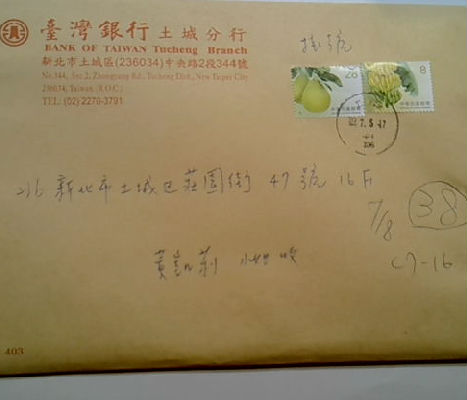 臺灣銀行土城分行
BANK OF TAIWAN Tucheng Branch
新北市土城區(236034)中央路2段344號
No.344, Sec 2, Zhongyang Rd., Tucheng Dist., New Taipei City
236034, Taiwan (R.O.C.)
TEL: (02)2270-3791
掛號
28
8
236 新北市土城區莊園街 47號 16F
7/8
38
黃凱莉 小姐 收
C7-16
403